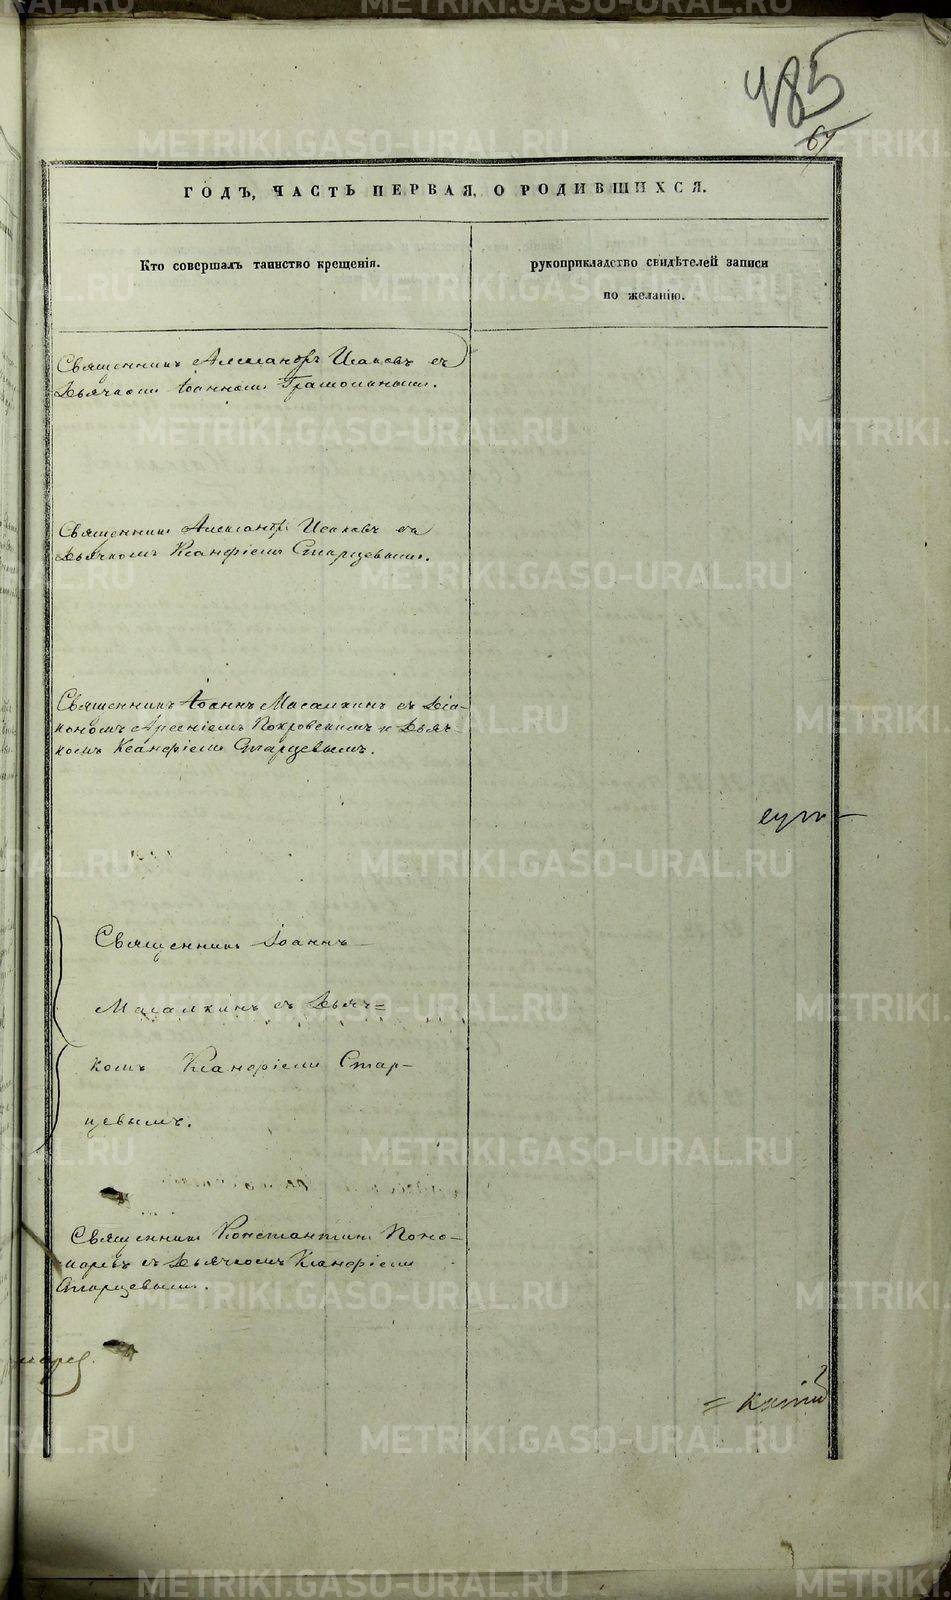 485
67
ГОДЪ, ЧАСТЬ ПЕРВАЯ, О РОДИВШИХСЯ.
Кто совершалъ таинство крещенія.
рукоприкладство свидѣтелей записи
по желанію.
Священникъ Александръ Исаковъ съ
Дьячкомъ Іоанномъ
Священникъ Александръ Исаковъ съ
Дьячкомъ Ксанфіемъ Старцевымъ.
Священникъ Іоаннъ Масалкинъ съ Діа-
кономъ Арсеніемъ Покровскимъ и Дьяч-
комъ Ксанфіемъ Старцевымъ.
Священникъ Іоаннъ
Масалкинъ съ Дьяч=
комъ Ксанфіемъ Стар-
цевымъ.
Священникъ Константинъ Поно-
маревъ съ Дьячкомъ Ксанфіемъ
Старцевымъ.
METRIKI.GASO-URAL.RU